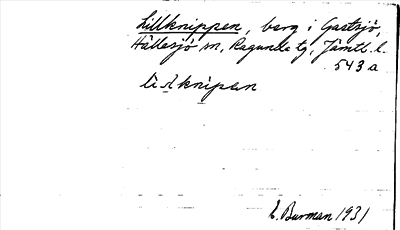 Lillknippen, berg i Gastsjö,
Hällesjö sn, Ragunda tg, Jämtl. l.
543 a
E. Burman 1931